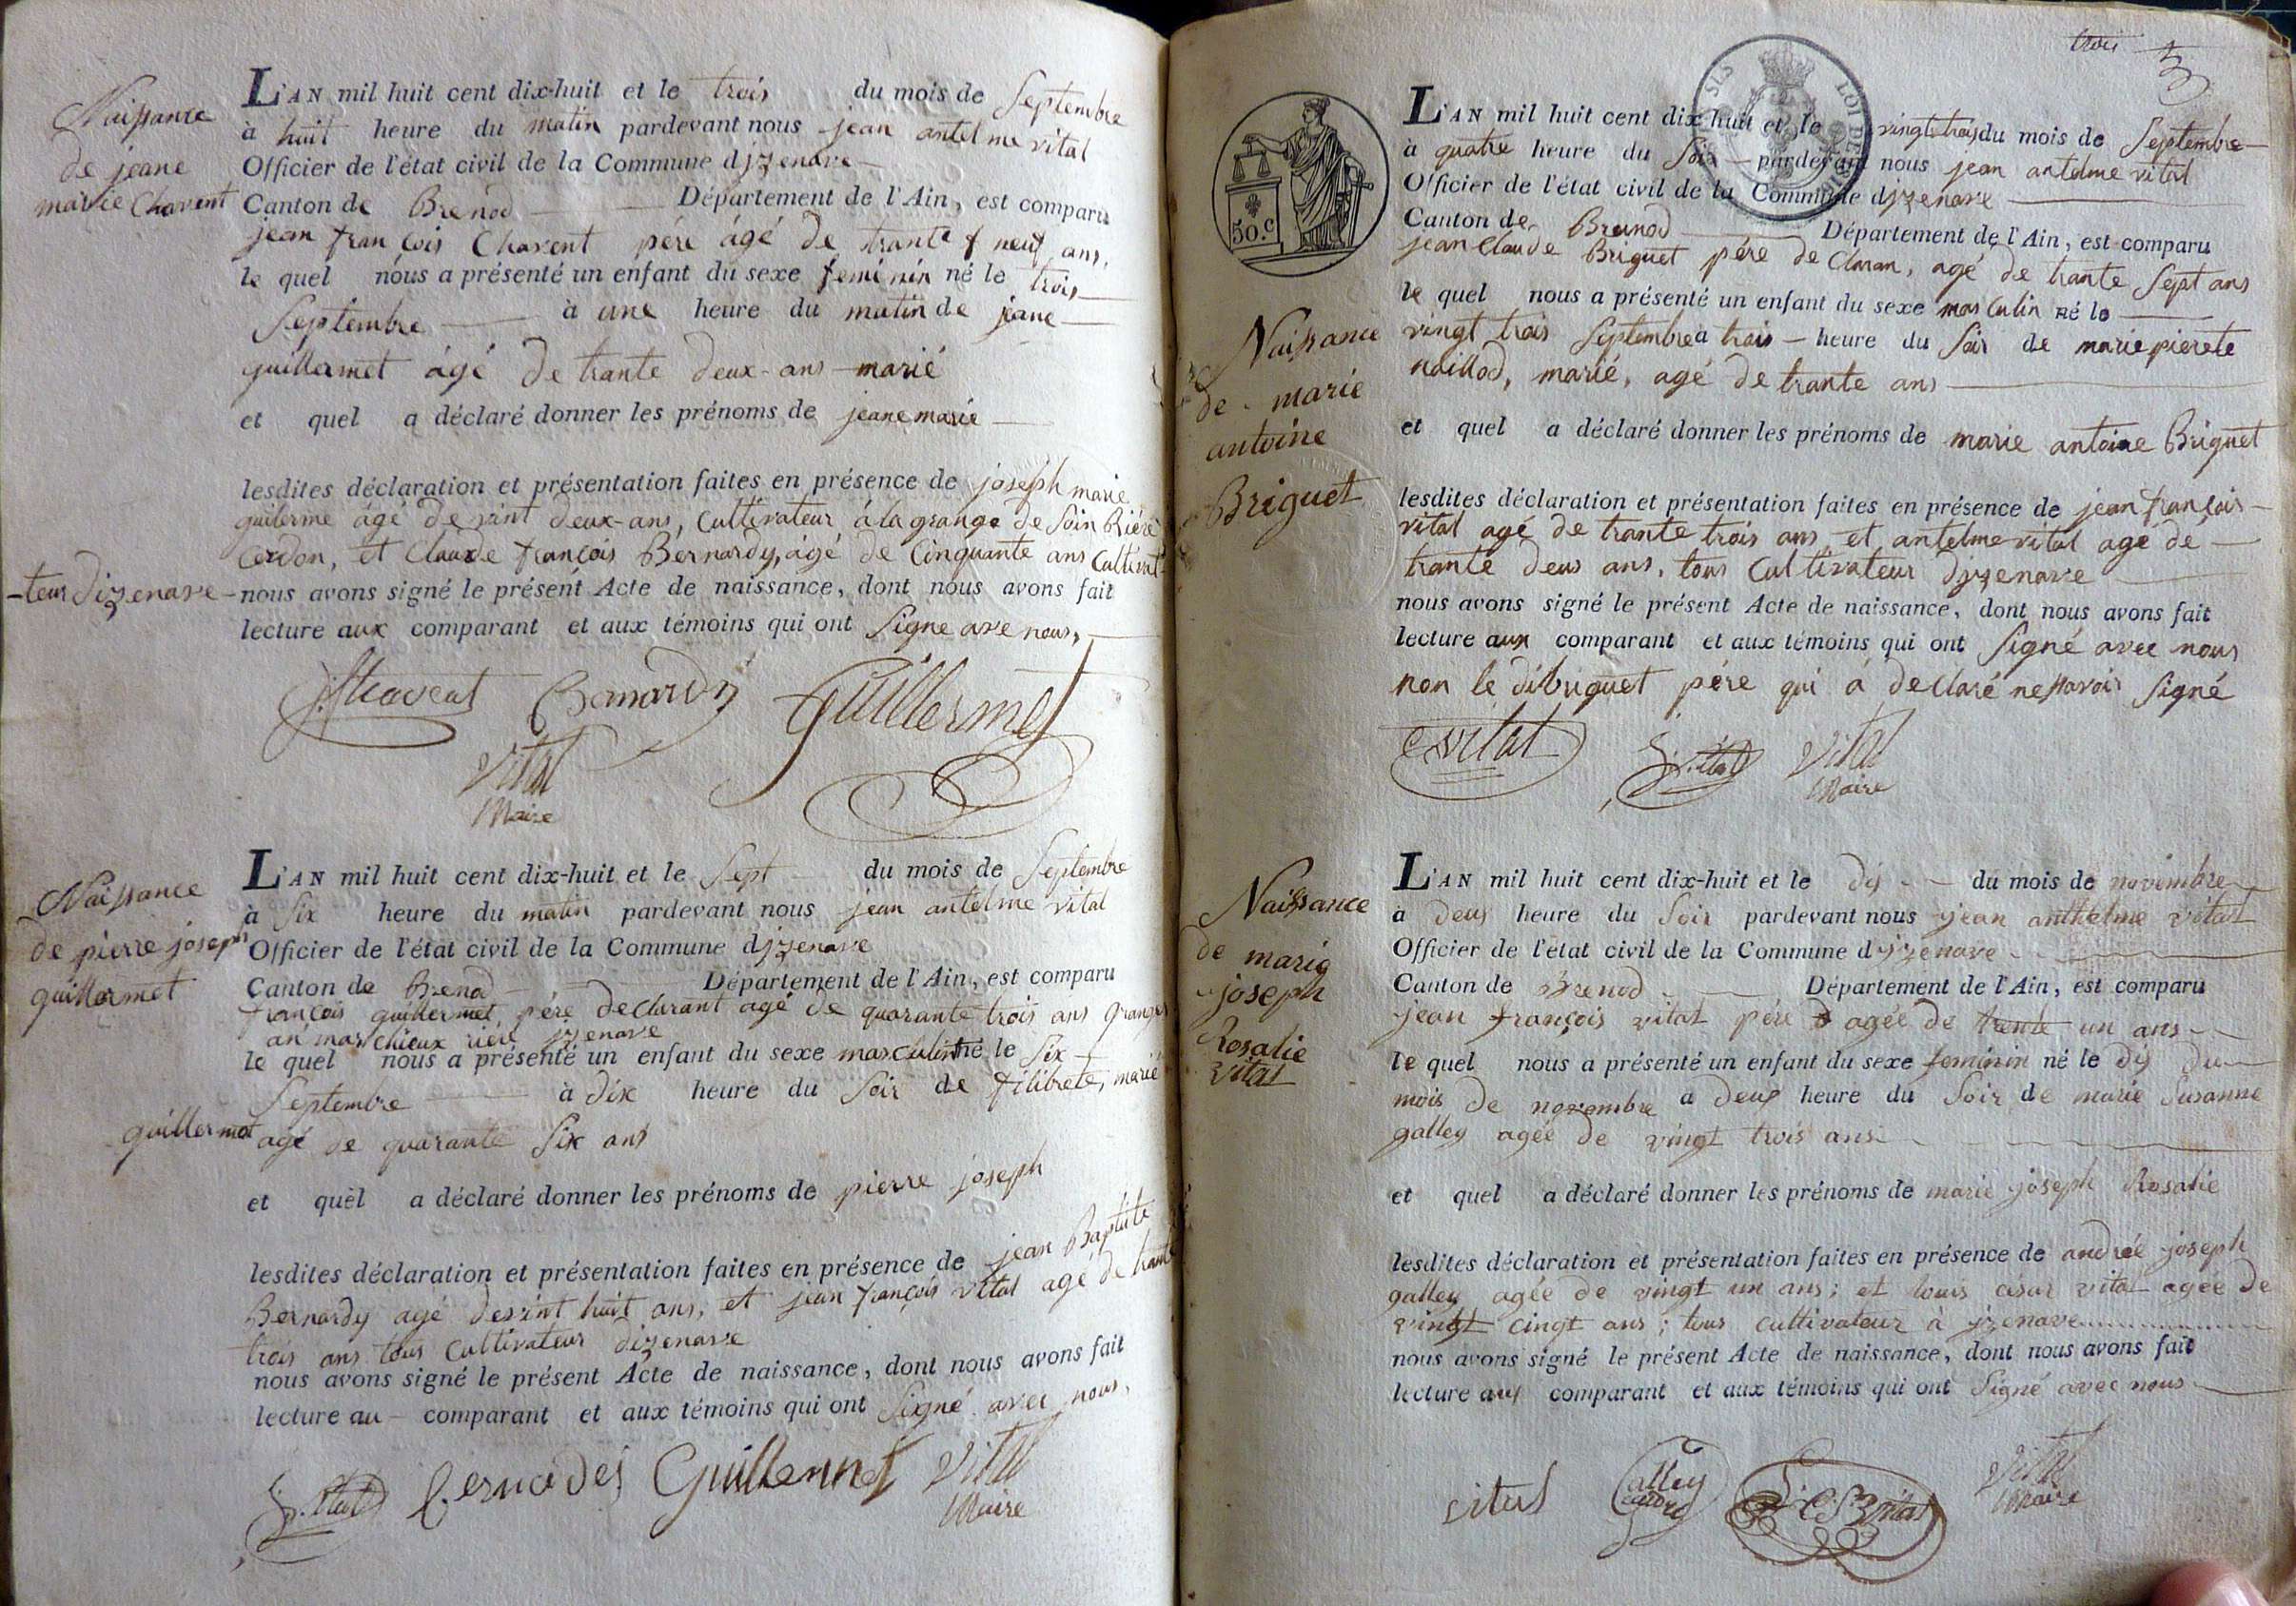 Naissance
de jeane
marie Chavent
L'AN mil huit cent dix-huit et le trois du mois de Septembre
à huit heure du matin pardevant nous jean antelme vital
Officier de l'état civil de la Commune dizenave
Canton de Brenod Département de l'Ain, est comparu
jean françois Chavent père âgé de trante neuf ans,
le quel nous a présenté un enfant du sexe féminin né le trois
Septembre à une heure du matin de jeane
guillermet âgé de trante deux ans marié
et quel a déclaré donner les prénoms de jeane marie
lesdites déclaration et présentation faites en présence de joseph marie
guilerme âgé de vint deux ans, Cultivateur à la grange de Soin Riére
Cerdon, et Claude françois Bernardy, âgé de Cinquante ans Cultivat
-teur dizenave nous avons signé le présent Acte de naissance, dont nous avons fait
lecture aux comparant et aux témoins qui ont Signe ave nous,
Chavent Bernardy Guillermet
Vital
Maire
Naissance
de pierre joseph
guillermet
L'AN mil huit cent dix-huit et le Sept du mois de Septembre
à Six heure du matin pardevant nous jean antelme vital
Officier de l'état civil de la Commune dizenave
Canton de Brenod Département de l'Ain, est comparu
françois guillermet, père declarant agé de quarante trois ans Granger
an marchieux riére izenave
le quel nous a présenté un enfant du sexe masculin né le Six
Septembre à dix heure du Soir de filiberte, marié
guillermet agé de quarante Six ans
et quel a déclaré donner les prénoms de pierre joseph
lesdites déclaration et présentation faites en présence de jean Baptiste
Bernardy agé devint huit ans, et jean françois vital agé de trante
trois ans tous Cultivateur dizenave
nous avons signé le présent Acte de naissance, dont nous avons fait
lecture au comparant et aux témoins qui ont Signé avec nous,
Vital Guillermet Vital
Maire
trois 3
50.c
Naissance
de marie
antoine
Briguet
L'AN mil huit cent dix-huit et le vingt trois du mois de Septembre
à quatre heure du Soir pardevant nous jean antelme vital
Officier de l'état civil de la Commune dizenave
Canton de Brenod Département de l'Ain, est comparu
jean Claude Briguet père de Claran, agé de trante Sept ans
le quel nous a présenté un enfant du sexe masculin né le
vingt trois Septembre à trois heure du Soir de marie pierete
naillod, marié, agé de trante ans
et quel a déclaré donner les prénoms de marie antoine Briguet
lesdites déclaration et présentation faites en présence de jean françois
vital agé de trante trois ans et antelme vital agé de
trante deus ans, tous Cultivateur dizenave
nous avons signé le présent Acte de naissance, dont nous avons fait
lecture aux comparant et aux témoins qui ont Signé avec nous
non le dibriguet père qui à declaré nessavoir Signé
vital vital Vital
Maire
Naissance
de marie
joseph
Rosalie
vital
L'AN mil huit cent dix-huit et le dis du mois de novembre
à deus heure du Soir pardevant nous jean anthelme vital
Officier de l'état civil de la Commune dizenave
Canton de Brenod Département de l'Ain, est comparu
jean françois vital père agée de trente un ans
le quel nous a présenté un enfant du sexe feminin né le dis du
mois de novembre a deus heure du Soir de marie Susanne
galley agée de vingt trois ans
et quel a déclaré donner les prénoms de marie joseph Rosalie
lesdites déclaration et présentation faites en présence de andrée joseph
galley agée de vingt un ans; et louis césar vital agée de
vingt cingt ans; tous cultivateur à izenave
nous avons signé le présent Acte de naissance, dont nous avons fait
lecture aus comparant et aux témoins qui ont Signé avec nous
vital Galley Vital Vital
Maire